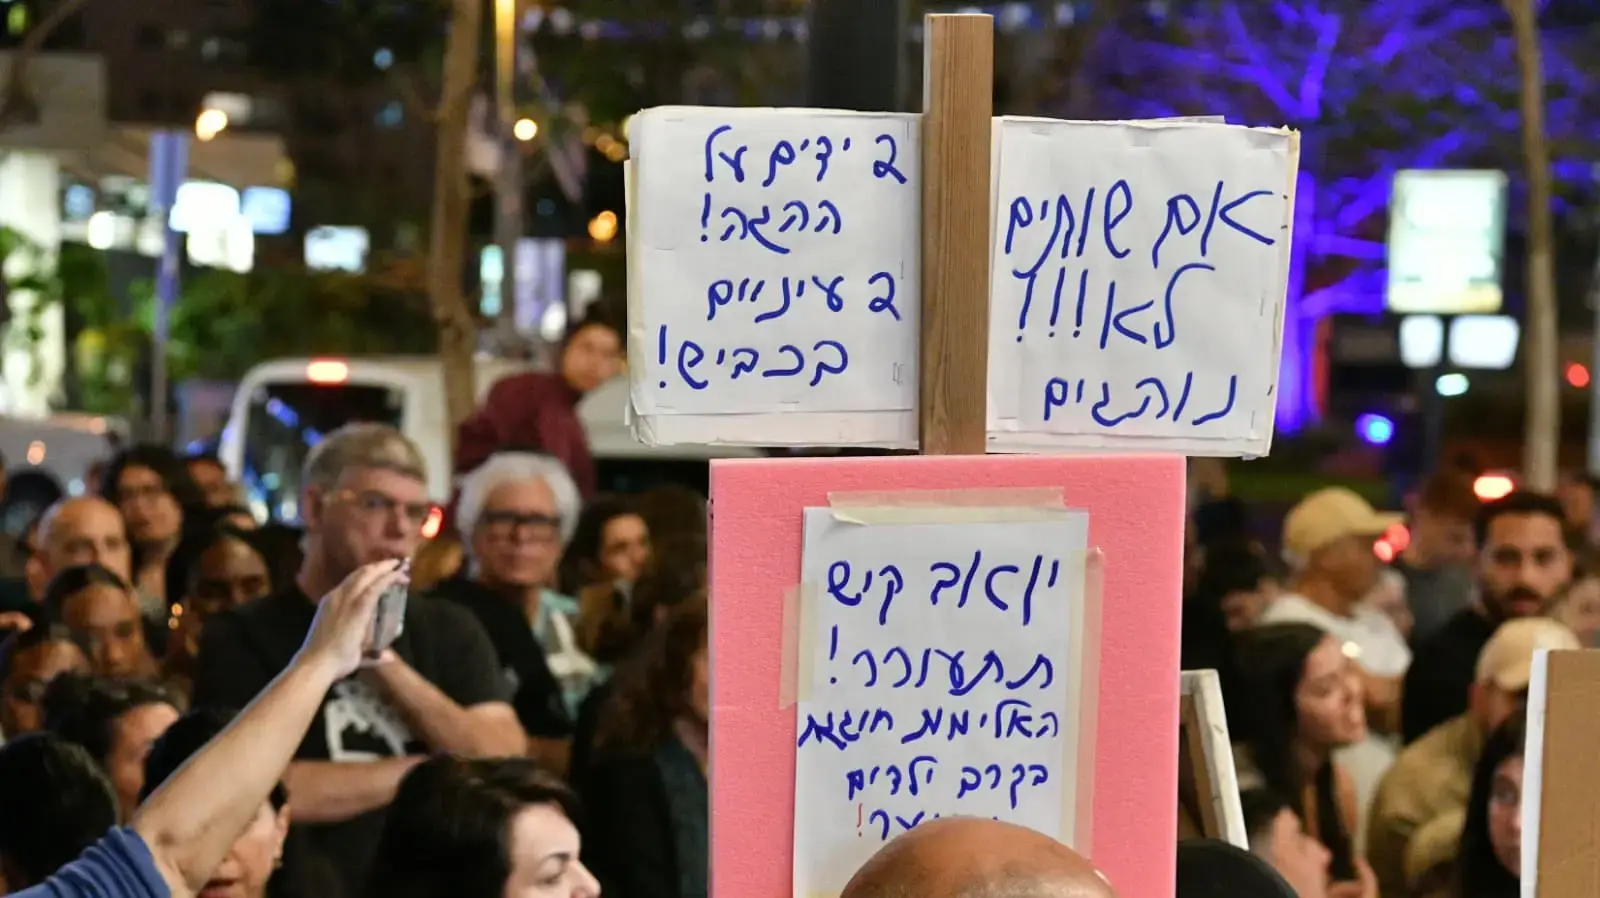 אם שותים
לא!!!
נוהגים
2 ידים על
ההגה!
2 עיניים
בכביש!
יואב קיש
תתעורר!
האלימות חוגגת
בקרב ילדים